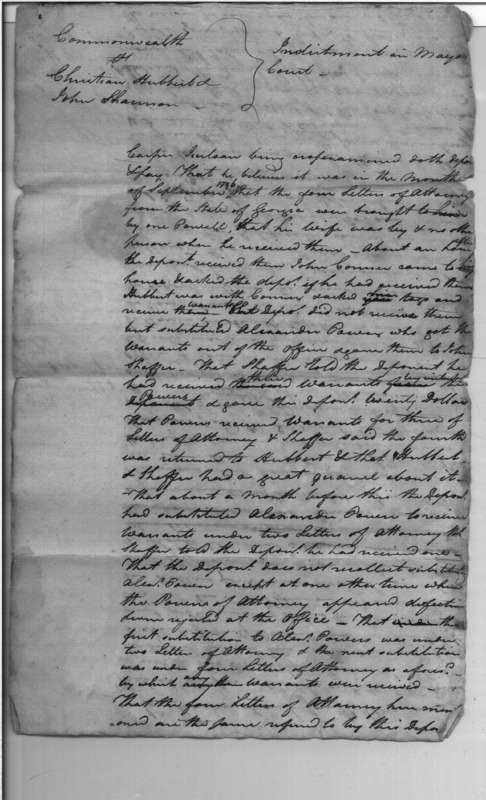 Commonwealth
vs
Christian Hubbert &
John Shannon
Indictment in Mayors
Court
being cross examined doth depose
& say That he believes it was in the Month
of September 1786 that the four Letters of Attorney
from the State of Georgia were brought to him
by one Powell, that his Wife was by & no other
person when he received them - About an hour after
the depont. received them John Connor came to his
house & asked the depot. if he had received them
Hubbert was with Connor & asked to go and
receive them Warrants But Depot. did not receive them
but substituted Alexander Power who got the
Warrants out of the office & gave them to John
Shaffer - That Shaffer told the Deponent he
had received three Warrants
Powers & gave this Depont. twenty Dollars
That Powers received Warrants for three of
Letters of Attorney & Shaffer said the fourth
was returned to Hubbert & that Hubbert
& Shaffer had a great quarrel about it -
That about a Month before this the Depont.
had substituted Alexander Power to receive
Warrants under two Letters of Attorney that
Shaffer told the Depont. he had received one -
That the Depont. does not recollect substitutg.
Alexr. Power except at one other time when
the Powers of Attorney appeared defective &
were rejected at the Office - That the
first substitution to Alexr. Powers was under
two Letters of Attorney & the next substitution
was under four Letters of Attorney as aforesd. -
by which any Warrants were received -
That the four Letters of Attorney here men
oned are the same referred to by this Depon